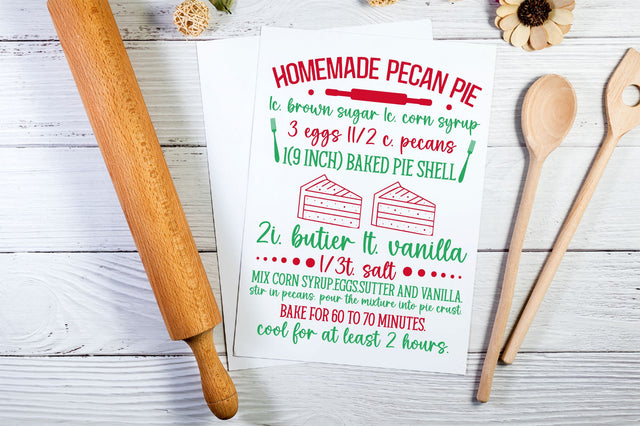 HOMEMADE PECAN PIE
1c. brown sugar 1c. corn syrup
3 eggs 11/2 c. pecans
1(9 INCH) BAKED PIE SHELL
2i. butier 1t. vanilla
1/3t. salt
MIX CORN SYRUP,EGGS.SUTTER AND VANILLA.
stir in pecans. pour the mixture into pie crust.
BAKE FOR 60 TO 70 MINUTES.
cool for at least 2 hours.